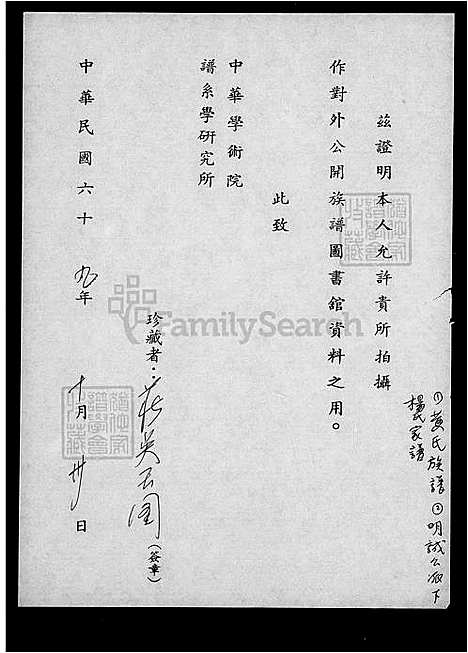 ①黄氏族譜②明誠公派下
楊氏家譜
茲證明本人允許貴所拍攝
作對外公開族譜圖書館資料之用。
此致
中華學術院
譜系學研究所
珍藏者：吳
(簽章)
中華民國六十九年十月卅日
FamilySearch